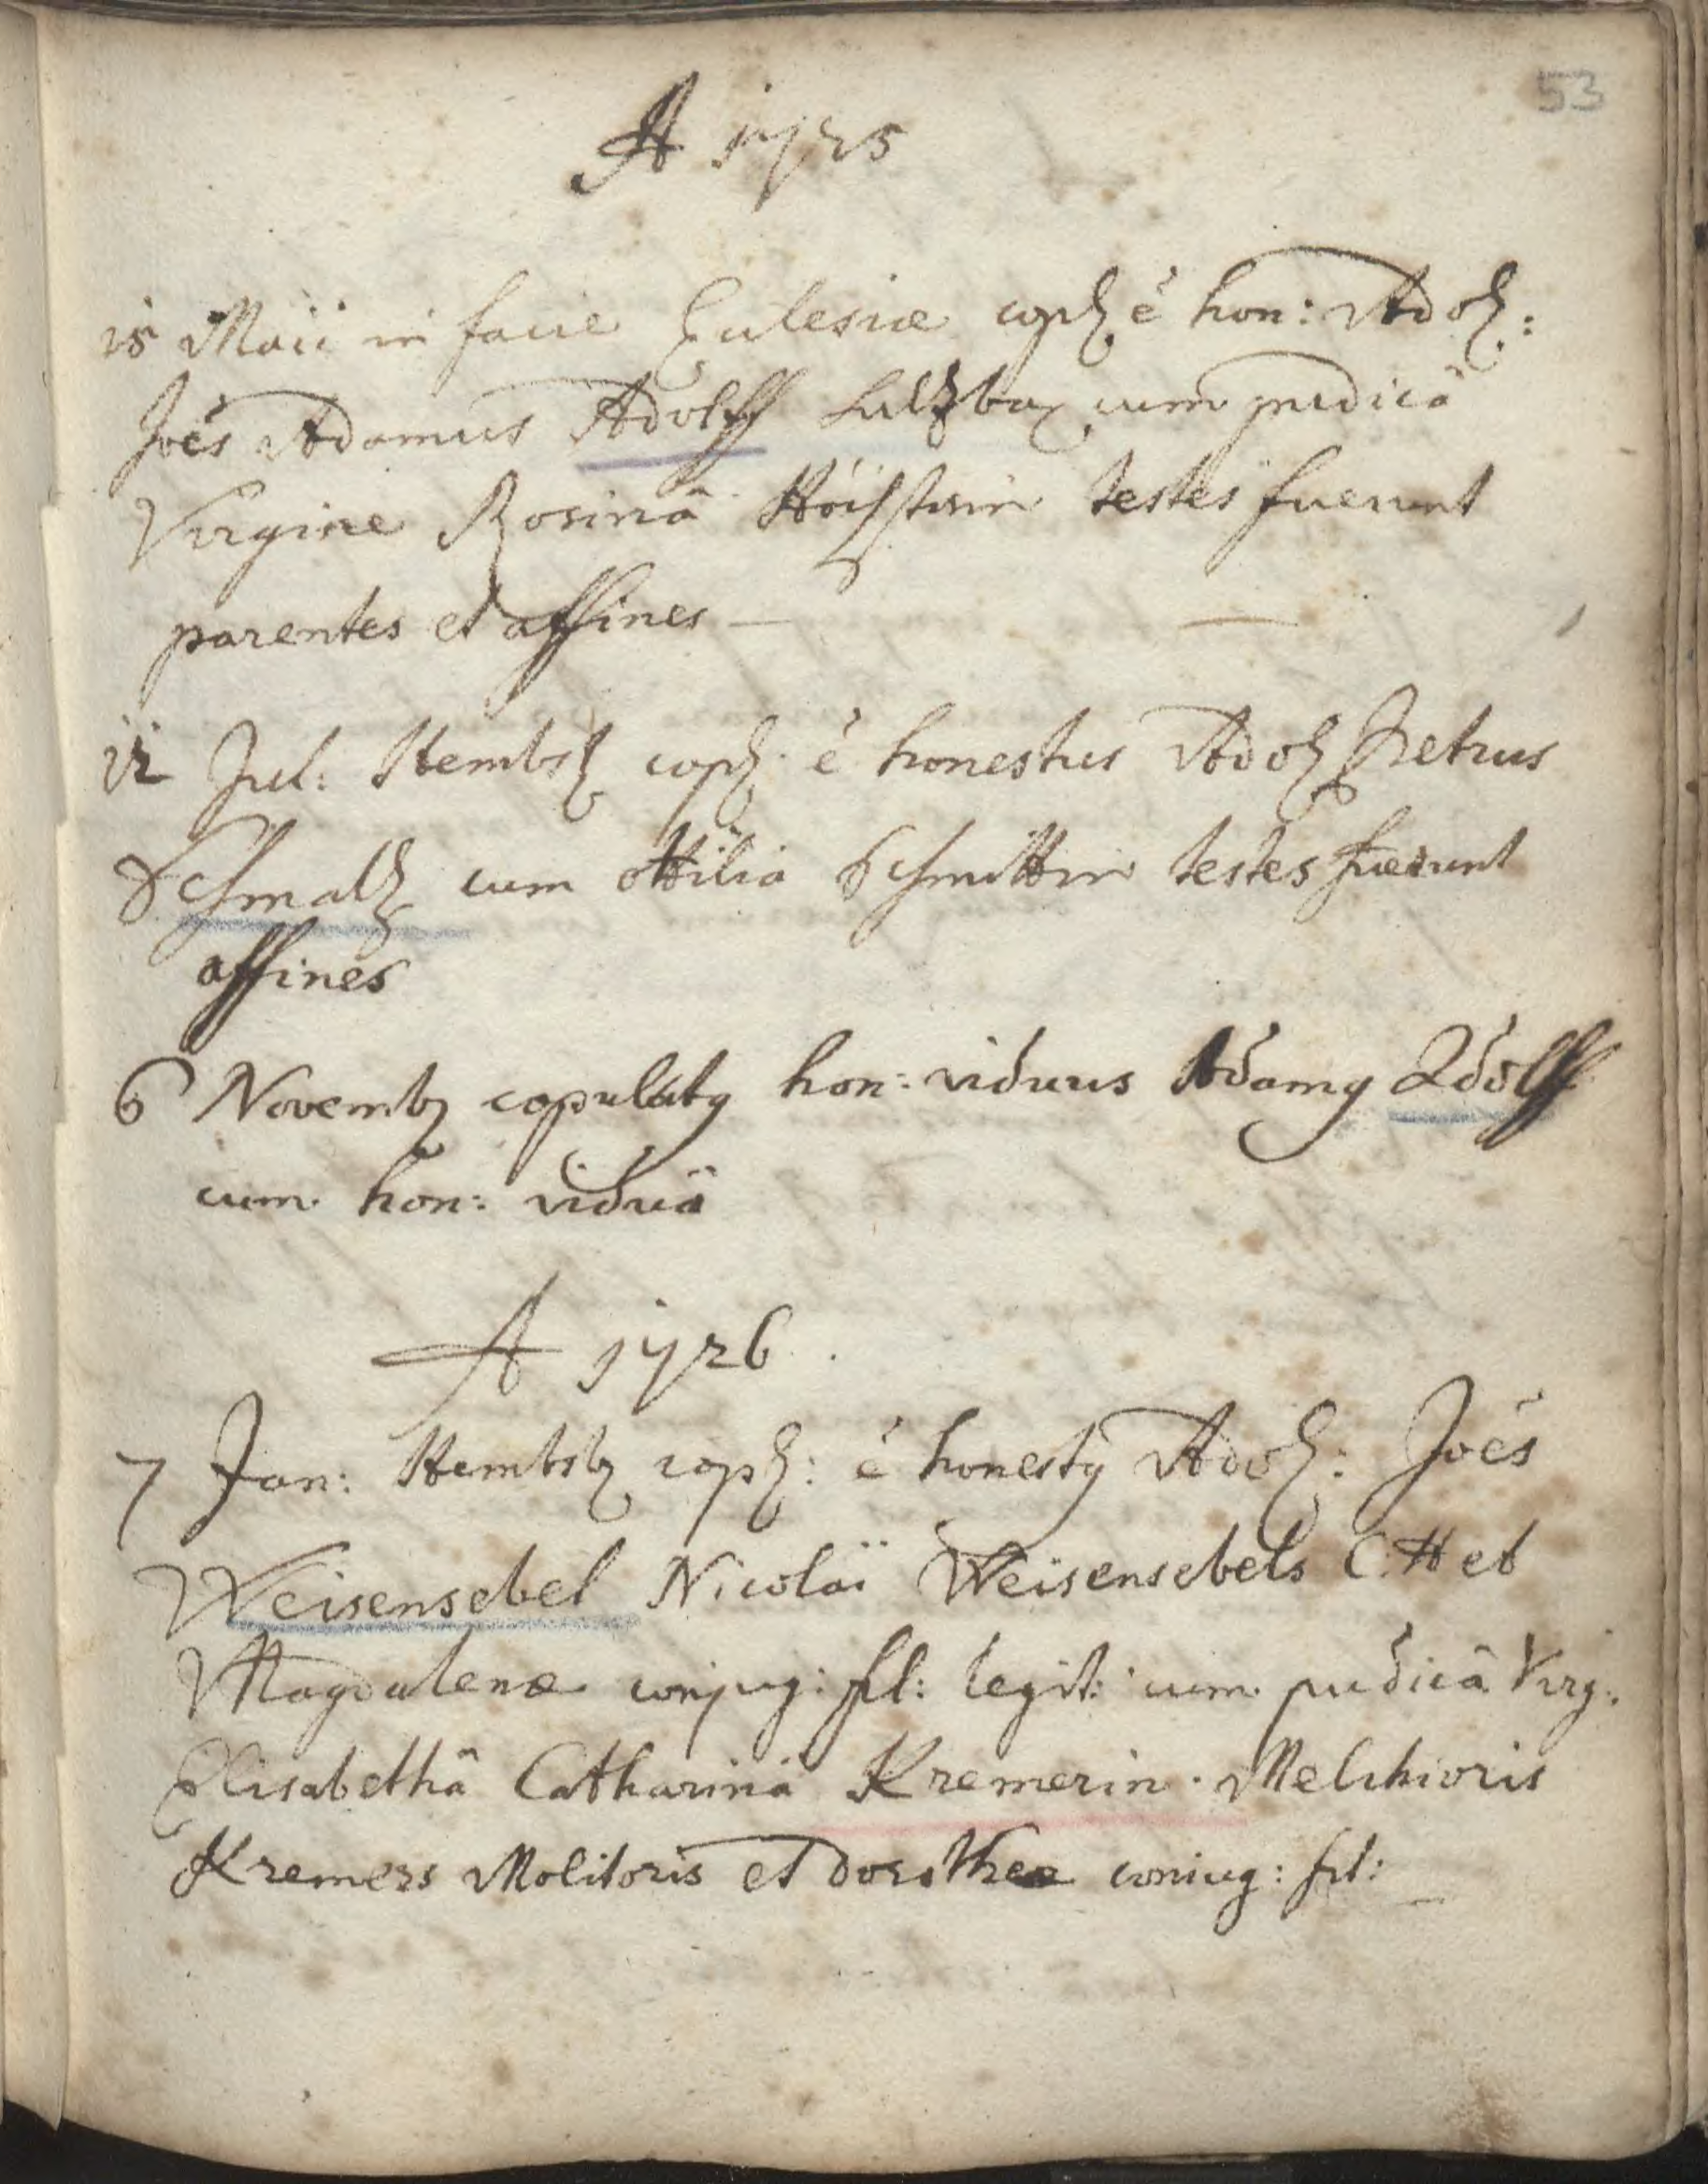 53
A 1725
15 Maii in facie Ecclesiæ cop: ē hon: Adol:
Joēs Adamus Adolff cum pudicâ
Virgine Rosinâ testes fuerunt
parentes et affines —
12 Jul: Hembs: cop: ē honestus Adol: Petrus
Schmalz cum Ottiliâ Schmittin testes fuerunt
affines
6 Novemb: copulatus hon: viduus Adamus Adolff
cum hon: viduâ
A 1726.
7 Jan: Hembsb: cop: ē honestus Adol: Joēs
Weisensebel Nicolai Weisensebels et
Magdalenæ conjug: fil: legit: cum pudicâ Virg:
Elisabethâ Catharinâ Kremerin Melchioris
Kremers Molitoris et dorotheæ coniug: fil: —